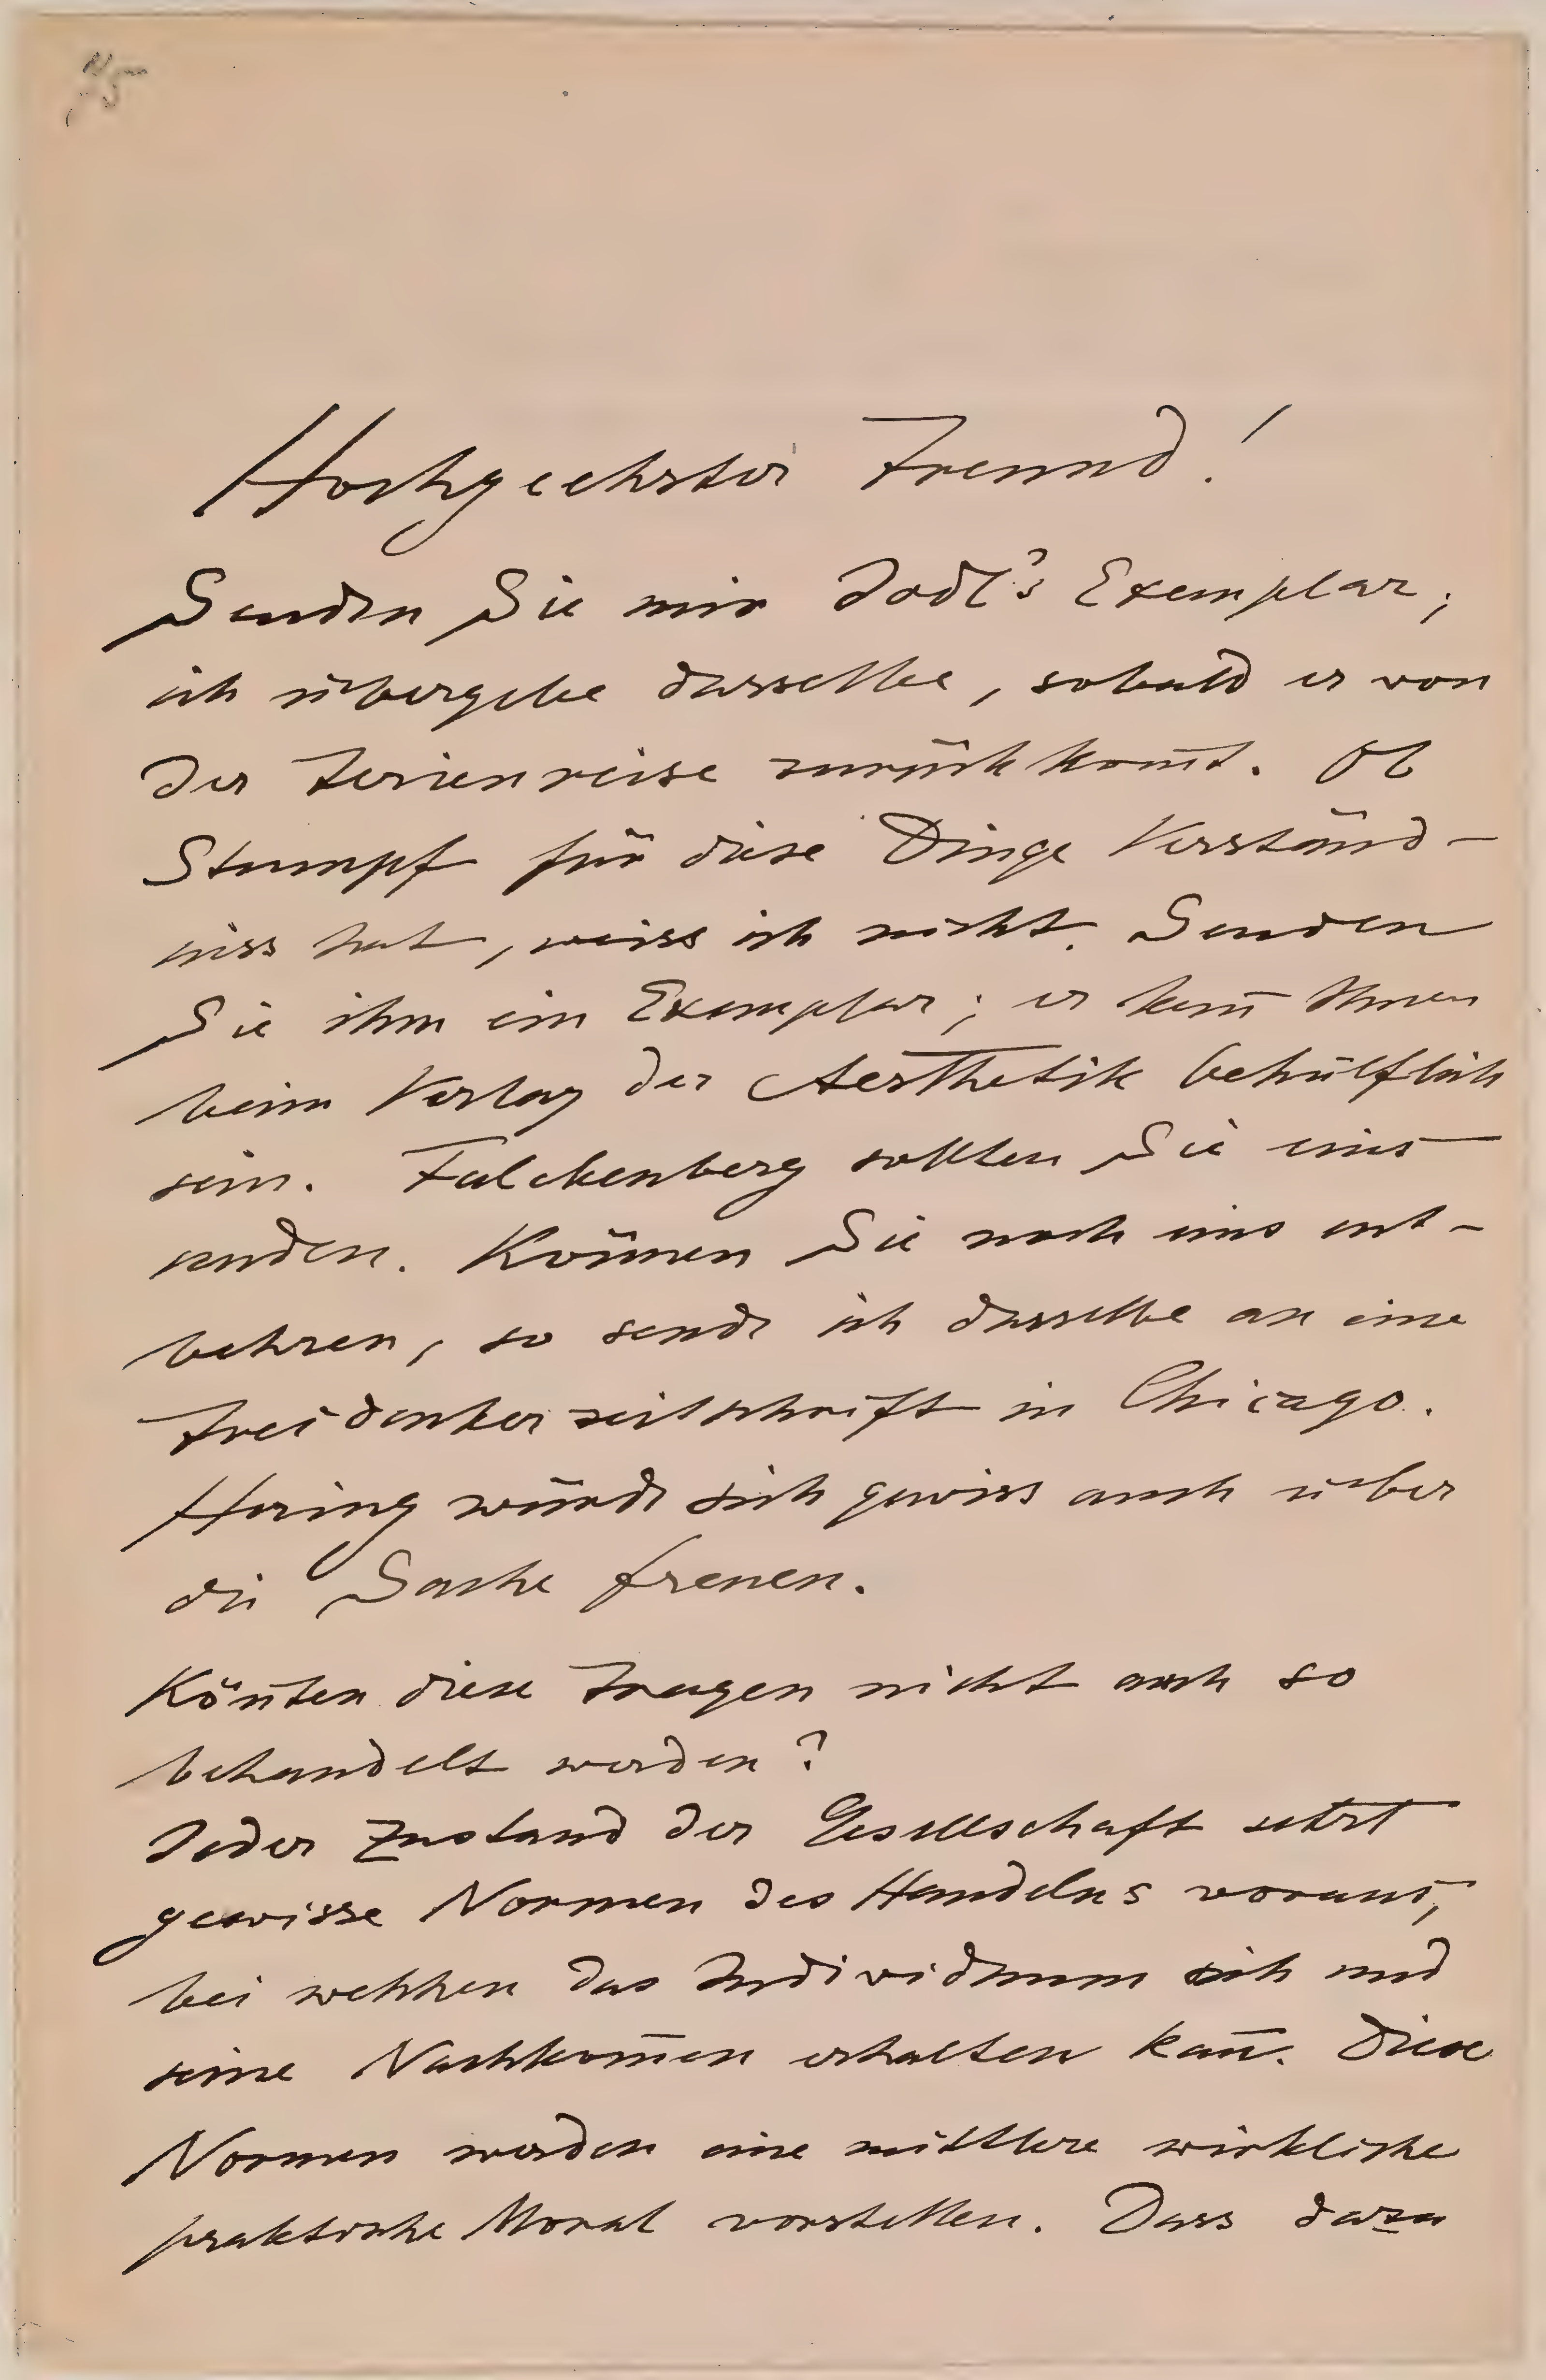 Hochgeehrter Freund!
Senden Sie mir Jodl's Exemplar;
ich übergebe dasselbe, sobald er von
der Ferienreise zurückkom̅t. Ob
Stumpf für diese Dinge Verständ-
niss hat, weiss ich nicht. Senden
Sie ihm ein Exemplar; er kan̅ Ihnen
beim Verlag der Aesthetik behülflich
sein. Falckenberg sollten Sie eins
senden. Kön̅en Sie noch eins ent-
behren, so sende ich dasselbe an eine
Freidenkerzeitschrift in Chicago.
Hering würde sich gewiss auch über
die Sache freuen.
Kön̅ten diese Fragen nicht auch so
behandelt werden?
Jeder Zustand der Gesellschaft setzt
gewisse Normen des Handelns voraus,
bei welchen das Individuum sich und
seine Nachkom̅en erhalten kan̅. Diese
Normen werden eine mittlere wirkliche
praktische Moral vorstellen. Dass dazu